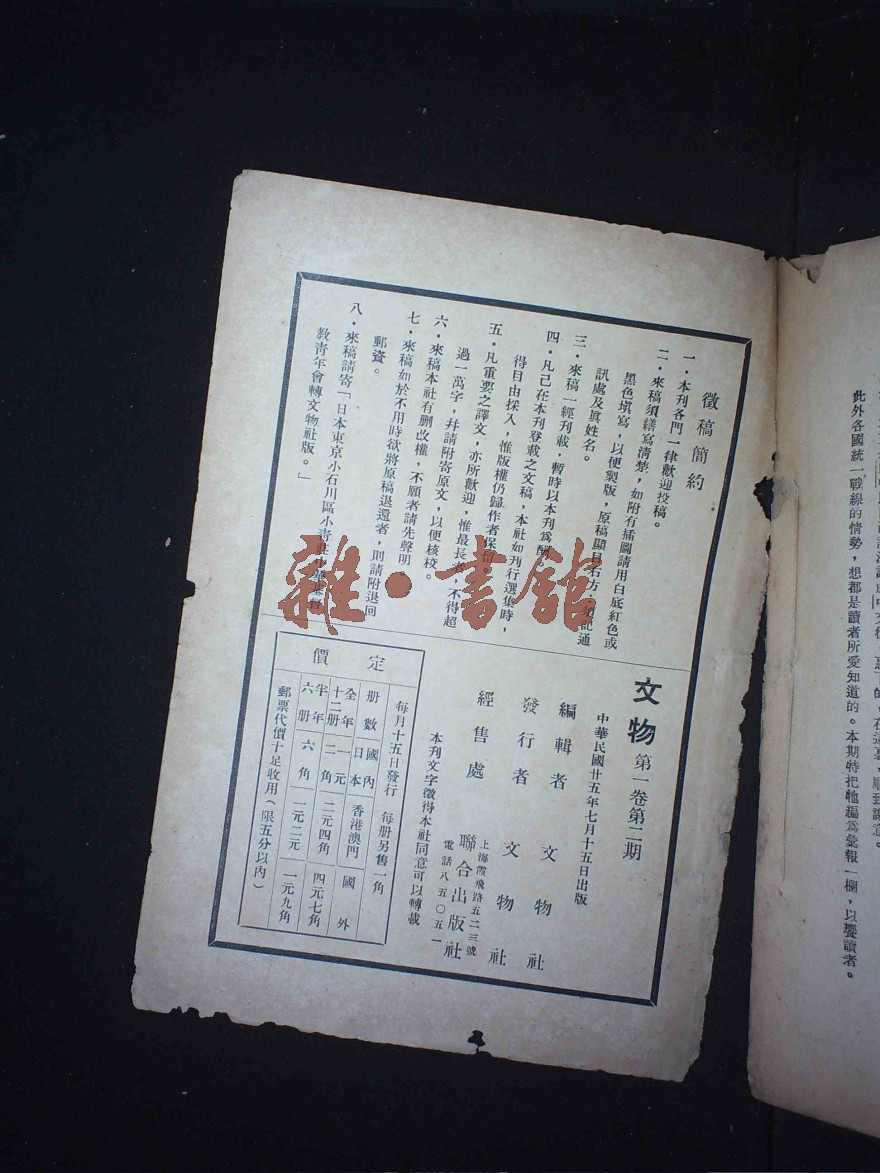 徵稿簡約
一．本刊各門一律歡迎投稿。
二．來稿須繕寫清楚，如附有插圖請用白底紅色或
黑色填寫，以便製版，原稿顯目右方，須記通
訊處及眞姓名。
三．來稿一經刊載，暫時以本刊爲酬
四．凡已在本刊登載之文稿，本社如刊行選集時，
得自由採入，惟版權仍歸作者保留。
五．凡重要之譯文，亦所歡迎，惟最長者，不得超
過一萬字，幷請附寄原文，以便核校。
六．來稿本社有刪改權，不願者請先聲明。
七．來稿如於不用時欲將原稿退還者，則請附退回
郵資。
八．來稿請寄「日本東京小石川區小青莊中華基督
教青年會轉文物社版。」
文物 第一卷第二期
中華民國廿五年七月十五日出版
編輯者 文物社
發行者 文物社
經售處 聯合出版社
上海霞飛路五二三號
電話八五〇五一
本刊文字徵得本社同意可以轉載
定價
每月十五日發行 每册另售一角
册數 國內日本 香港澳門 國外
全年十二册 一元二角 二元四角 四元七角
半年六册 六角 一元二元 二元九角
郵票代價十足收用（限五分以內）
此外各國統一戰線的情勢，想都是讀者所愛知道的。本期特把牠編爲彙報一欄，以饗讀者。
雜·書館